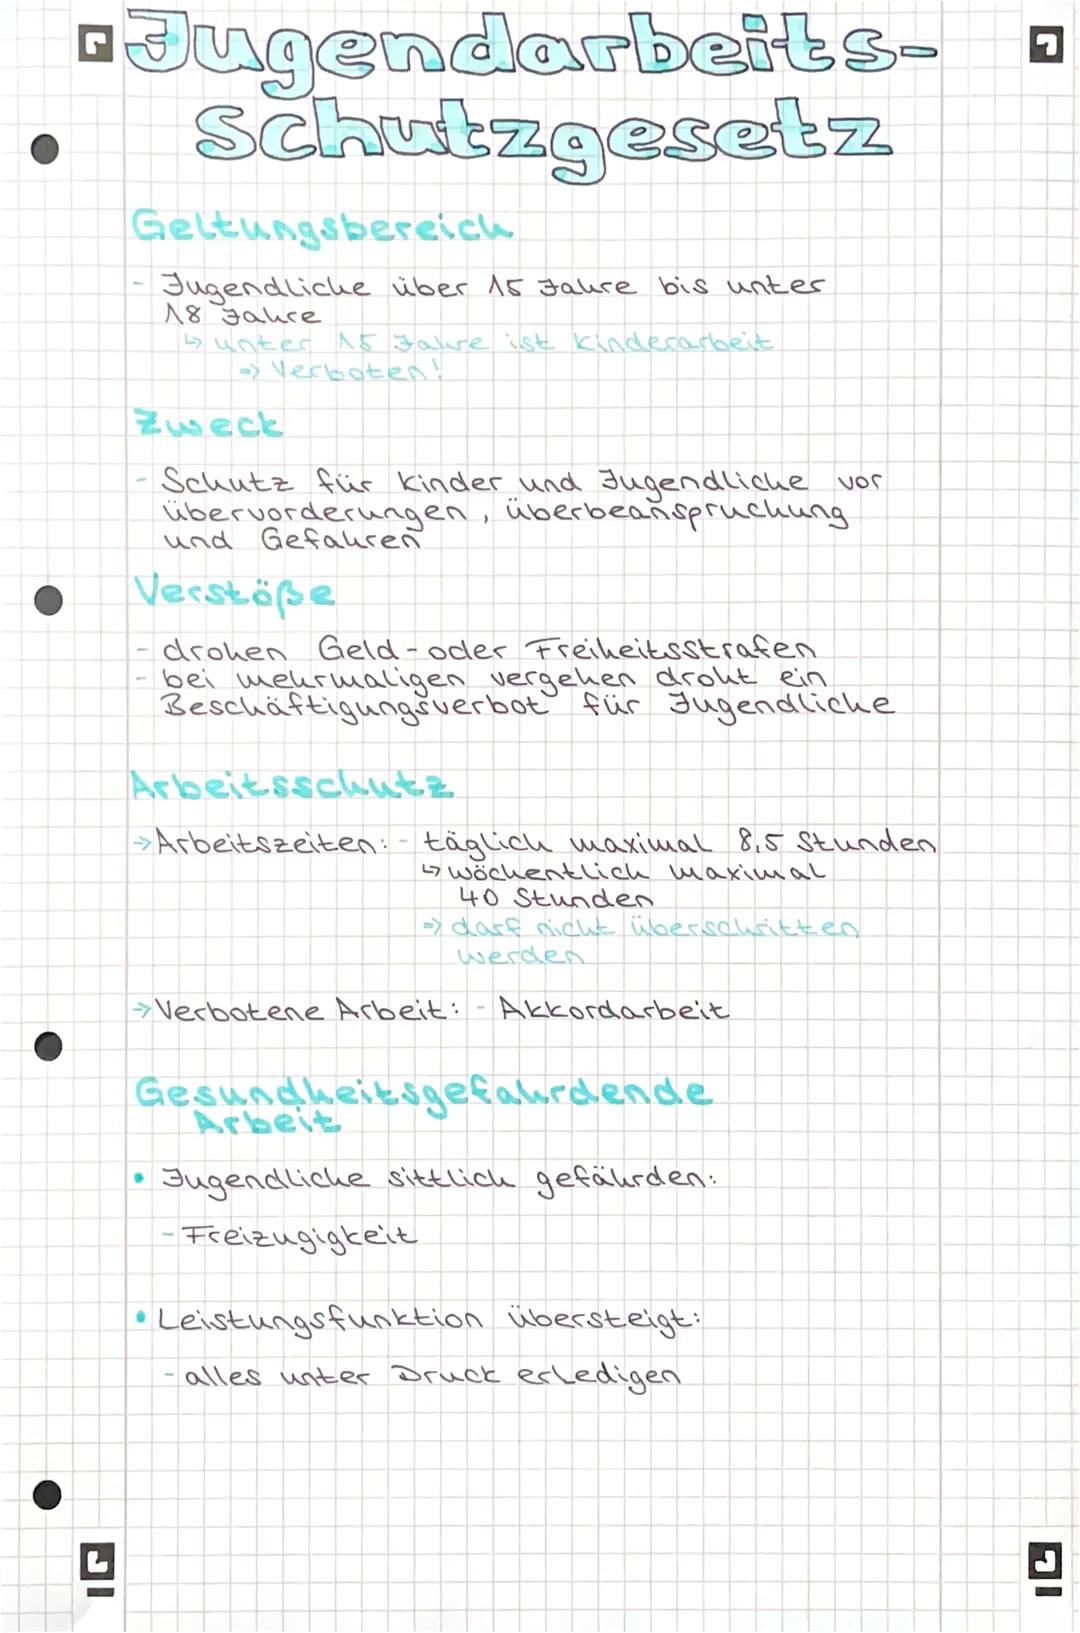 Jugendarbeits-
Schutzgesetz
Geltungsbereich
- Jugendliche über 15 Jahre bis unter
18 Jahre
↳ unter 15 Jahre ist Kinderarbeit
=> Verboten!
Zweck
- Schutz für Kinder und Jugendliche vor
übervorderungen, überbeanspruchung
und Gefahren
Verstöße
- drohen Geld-oder Freiheitsstrafen
- bei mehrmaligen vergehen droht ein
Beschäftigungsverbot für Jugendliche
Arbeitsschutz
→ Arbeitszeiten: - täglich maximal 8,5 Stunden
↳ wöchentlich maximal
40 Stunden
=> darf nicht überschritten
werden
→ Verbotene Arbeit: - Akkordarbeit
Gesundheitsgefahrdende
Arbeit
• Jugendliche sittlich gefährden:
- Freizugigkeit
• Leistungsfunktion übersteigt:
- alles unter Druck erledigen